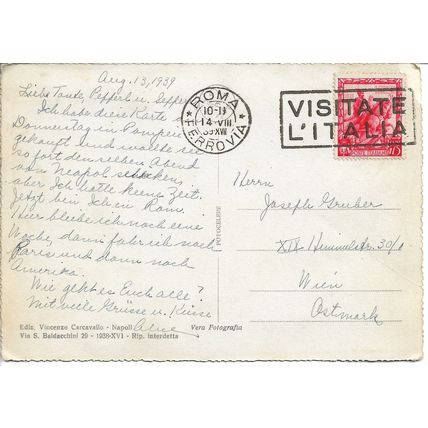 Aug. 13, 1939
Liebe Tante, Pepperl u. Seppe
Ich habe diese Karte
Donnerstag in Pompeii
gekauft und wollte sie
sofort denselben Abend
von Neapel schicken,
aber Ich hatte keine Zeit.
Jetzt bin Ich in Rom.
Hier bleibe ich noch eine
Woche, dann fahr ich nach
Paris und dann nach
Amerika.
Wie geht es Euch alle?
Mit viele Grüsse u. Küsse
Ediz. Vincenzo Carcavallo - Napoli
Via S. Baldacchini 29 - 1938-XVI - Rip. interdetta
Vera Fotografia
FOTOCELERE
ROMA
10-11
14 VIII
39 XVII
FERROVIA
VISITATE
L'ITALIA
POSTE ITALIANE
75
Herrn
Joseph Gruber
XIX Himmelstr. 30/1
Wien
Ostmark